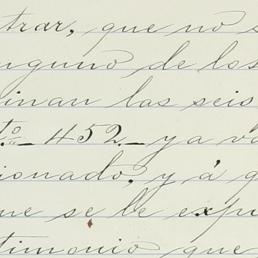 trar, que no s
nguno de los
inan las seis
to. 452 ya va
ionado, y á q
ue se le exp
timonio que